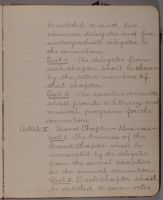 be entitled to send two
alumnae delegates and five
undergraduate delegates to
the convention.
Sect. 3. The delegates from
each chapter shall be chosen
by the active members of
that chapter.
Sect. 4. The executive committee
shall provide a literary and
musical program for the
convention.
Article V Grand Chapter – Business –
Sect. 1. The business of the
Grand Chapter shall be
transacted by the delegates
from the several chapters
at the annual convention.
Sect. 2. Each chapter shall
be entitled to seven votes